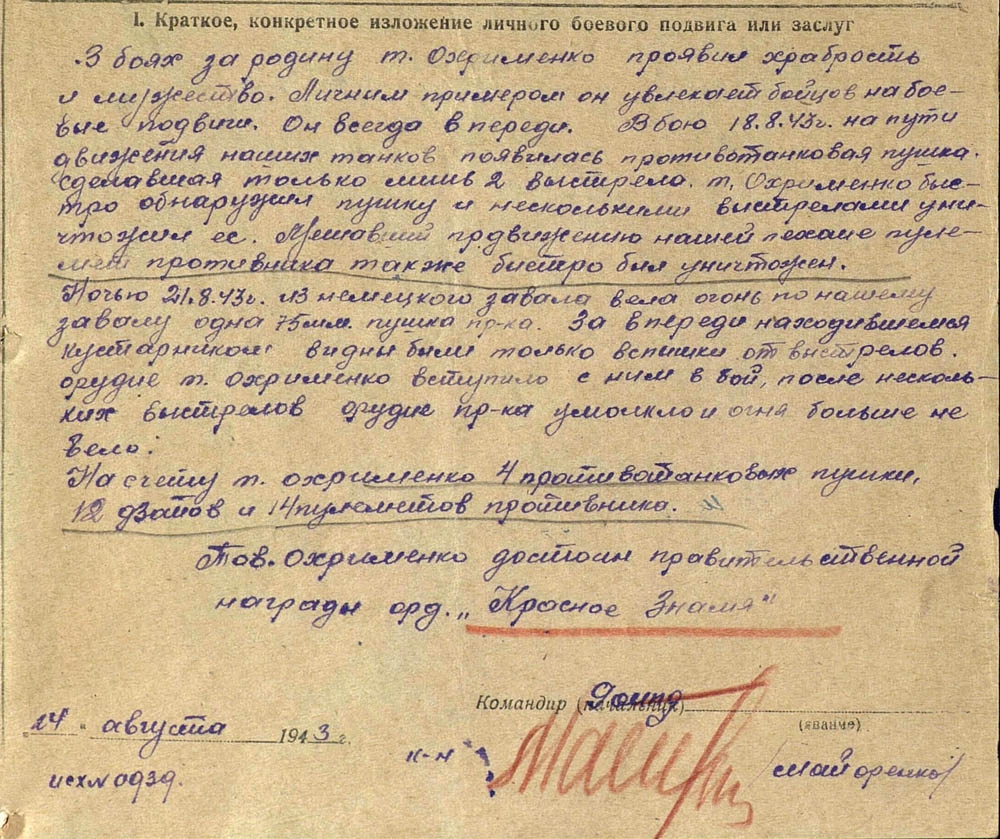 I. Краткое, конкретное изложение личного боевого подвига или заслуг
В боях за родину т. Охрименко проявил храбрость
и мужество. Личным примером он увлекает бойцов на бое-
вые подвиги. Он всегда впереди. В бою 18.8.43г. на пути
движения наших танков появилась противотанковая пушка.
сделавшая только лишь 2 выстрела. т. Охрименко быс-
тро обнаружил пушку и несколькими выстрелами уни-
чтожил ее. Мешавший продвижению нашей пехоте пуле-
мет противника также быстро был уничтожен.
Ночью 21.8.43г. из немецкого завала вела огонь по нашему
завалу одна 75мм. пушка пр-ка. За впереди находившемся
кустарником видны были только вспышки от выстрелов.
орудие т. Охрименко вступило с ним в бой, после несколь-
ких выстрелов орудие пр-ка умолкло и огня больше не
вело.
На счету т. Охрименко 4 противотанковых пушки,
12 дзотов и 14 пулеметов противника.
Тов. Охрименко достоин правительственной
награды орд. „Красное Знамя"
Командир (начальник)
(звание)
"24" августа 1943 г.
к-н /Майоренко/
исх № 0939.